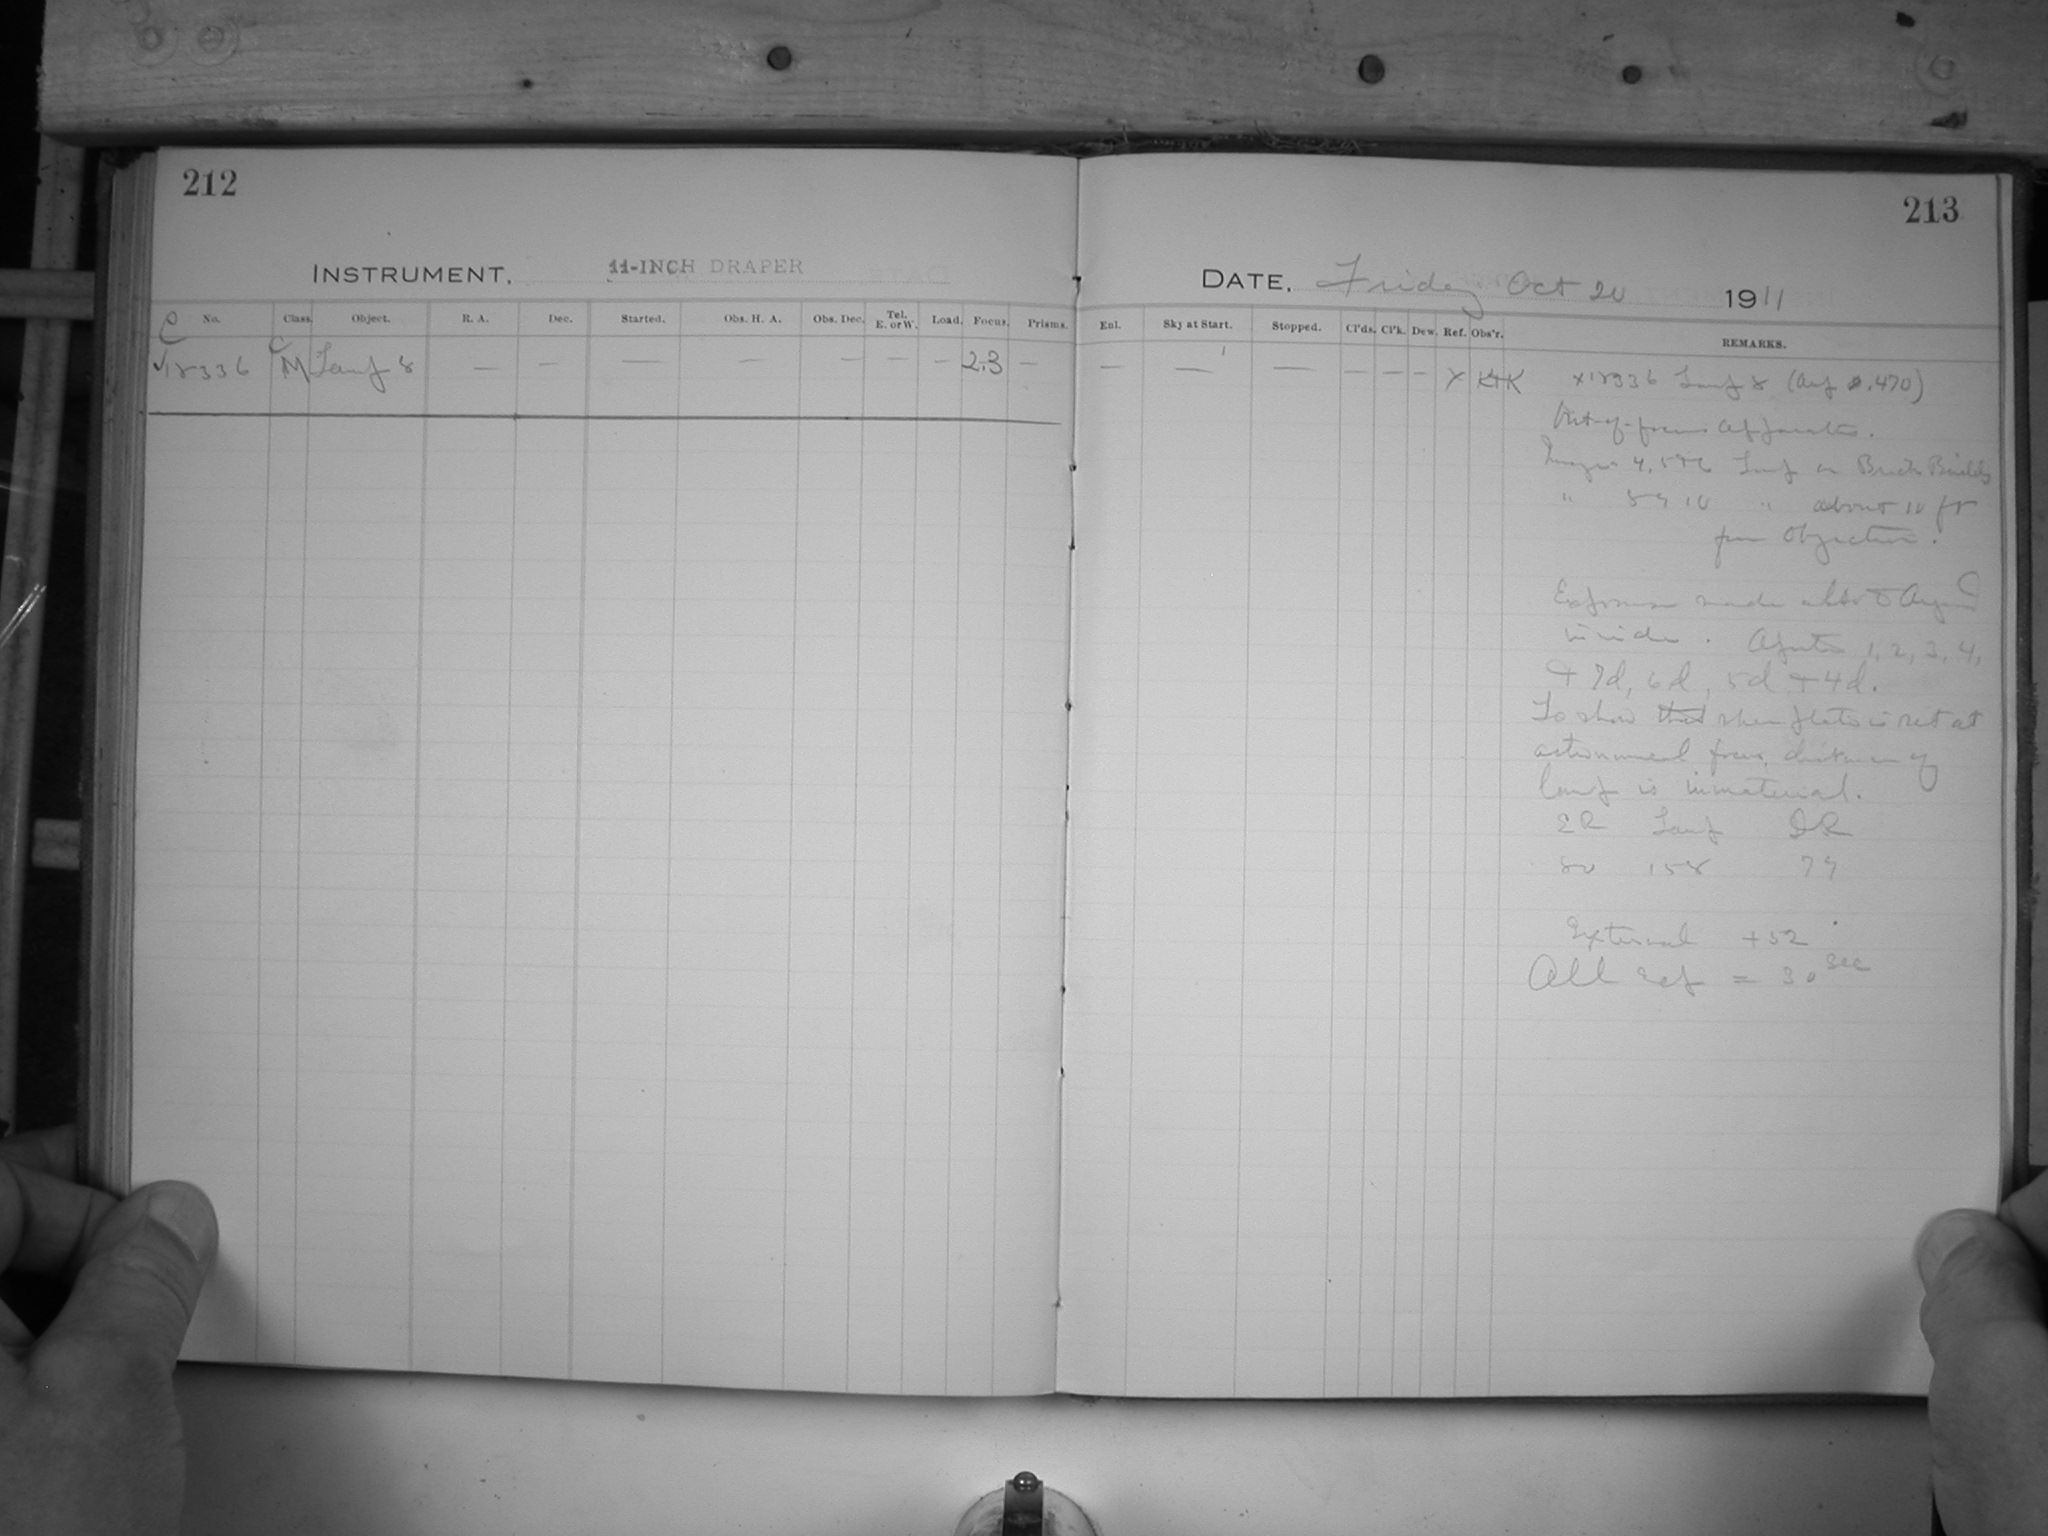 212
213
INSTRUMENT, 11-INCH DRAPER
DATE, Friday Oct 20 1911
No. Class. Object. R. A. Dec. Started. Obs. H. A. Obs. Dec. Tel. E. or W. Load. Focus. Prisms. Enl. Sky at Start. Stopped. Cl'ds. Cl'k. Dew. Ref. Obs'r. REMARKS.
C
✓18336 M Lamp 8 — — — — — — — 2.3 — — — — — — — X
X18336 Lamp 8 470)
Out-of-focus Apparatus.
Images Lamp on Brick
" " about 10 ft
from Objective.
Exposures made
inside. 1, 2, 3, 4,
+ 7d, 6d, 5d + 4d.
To show that when plate is set at
astronomical focus, distance of
lamp is immaterial.
ER Lamp
80 158
External +52
All = 30 sec